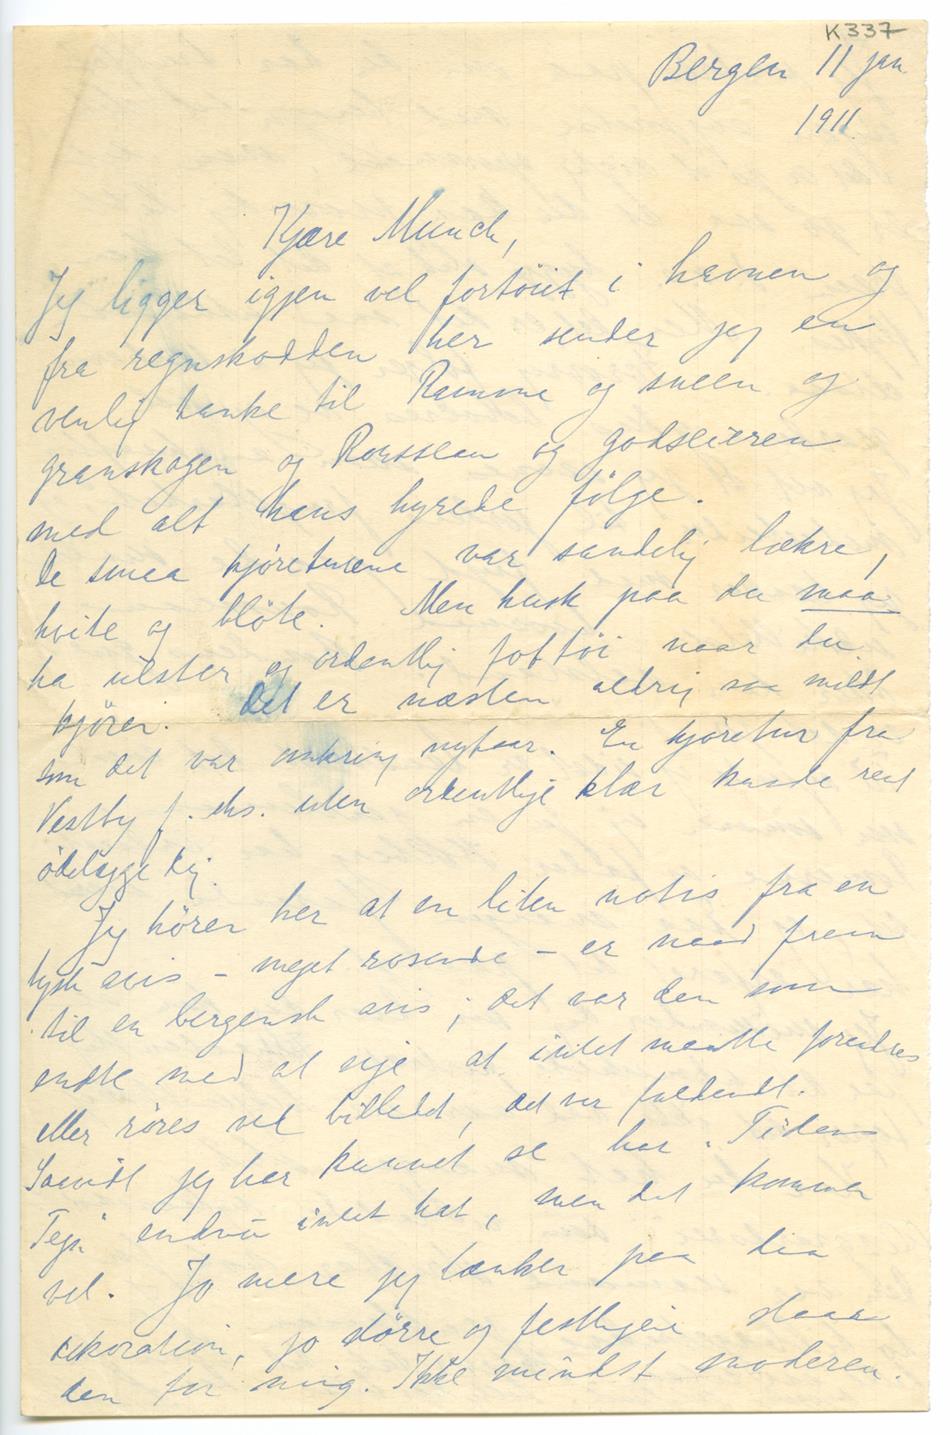 K337
Bergen 11 jan
1911.
Kjære Munch,
Jeg ligger igjen vel fortöiet i havnen og
fra regnskodden her sender jeg en
venlig tanke til Ramme og sneen og
granskogen og Rousseau og godseieren
med alt hans hyrede fölge.
De smaa kjöreturene var sandelig lækre,
hvite og blöte. Men husk paa du maa
ha ulster og ordentlig fottöi naar du
kjörer. Det er næsten aldrig saa mildt
som det var omkring nytaar. En kjöretur fra
Vestby f. eks. uten ordentlige klær kunde rent
ödelægge dig.
Jeg hörer her at en liten notis fra en
tysk avis – meget rosende – er naad frem
til en bergensk avis; det var den som
endte med at sige at intet maatte forandres
eller röres ved billedet, det var fuldendt.
Saavidt jeg har kunnet se har "Tidens
Tegn" endnu intet hat, men det kommer
vel. Jo mere jeg tænker paa din
dekoration, jo större og festligere staar
den for mig. Ikke mindst moderen.